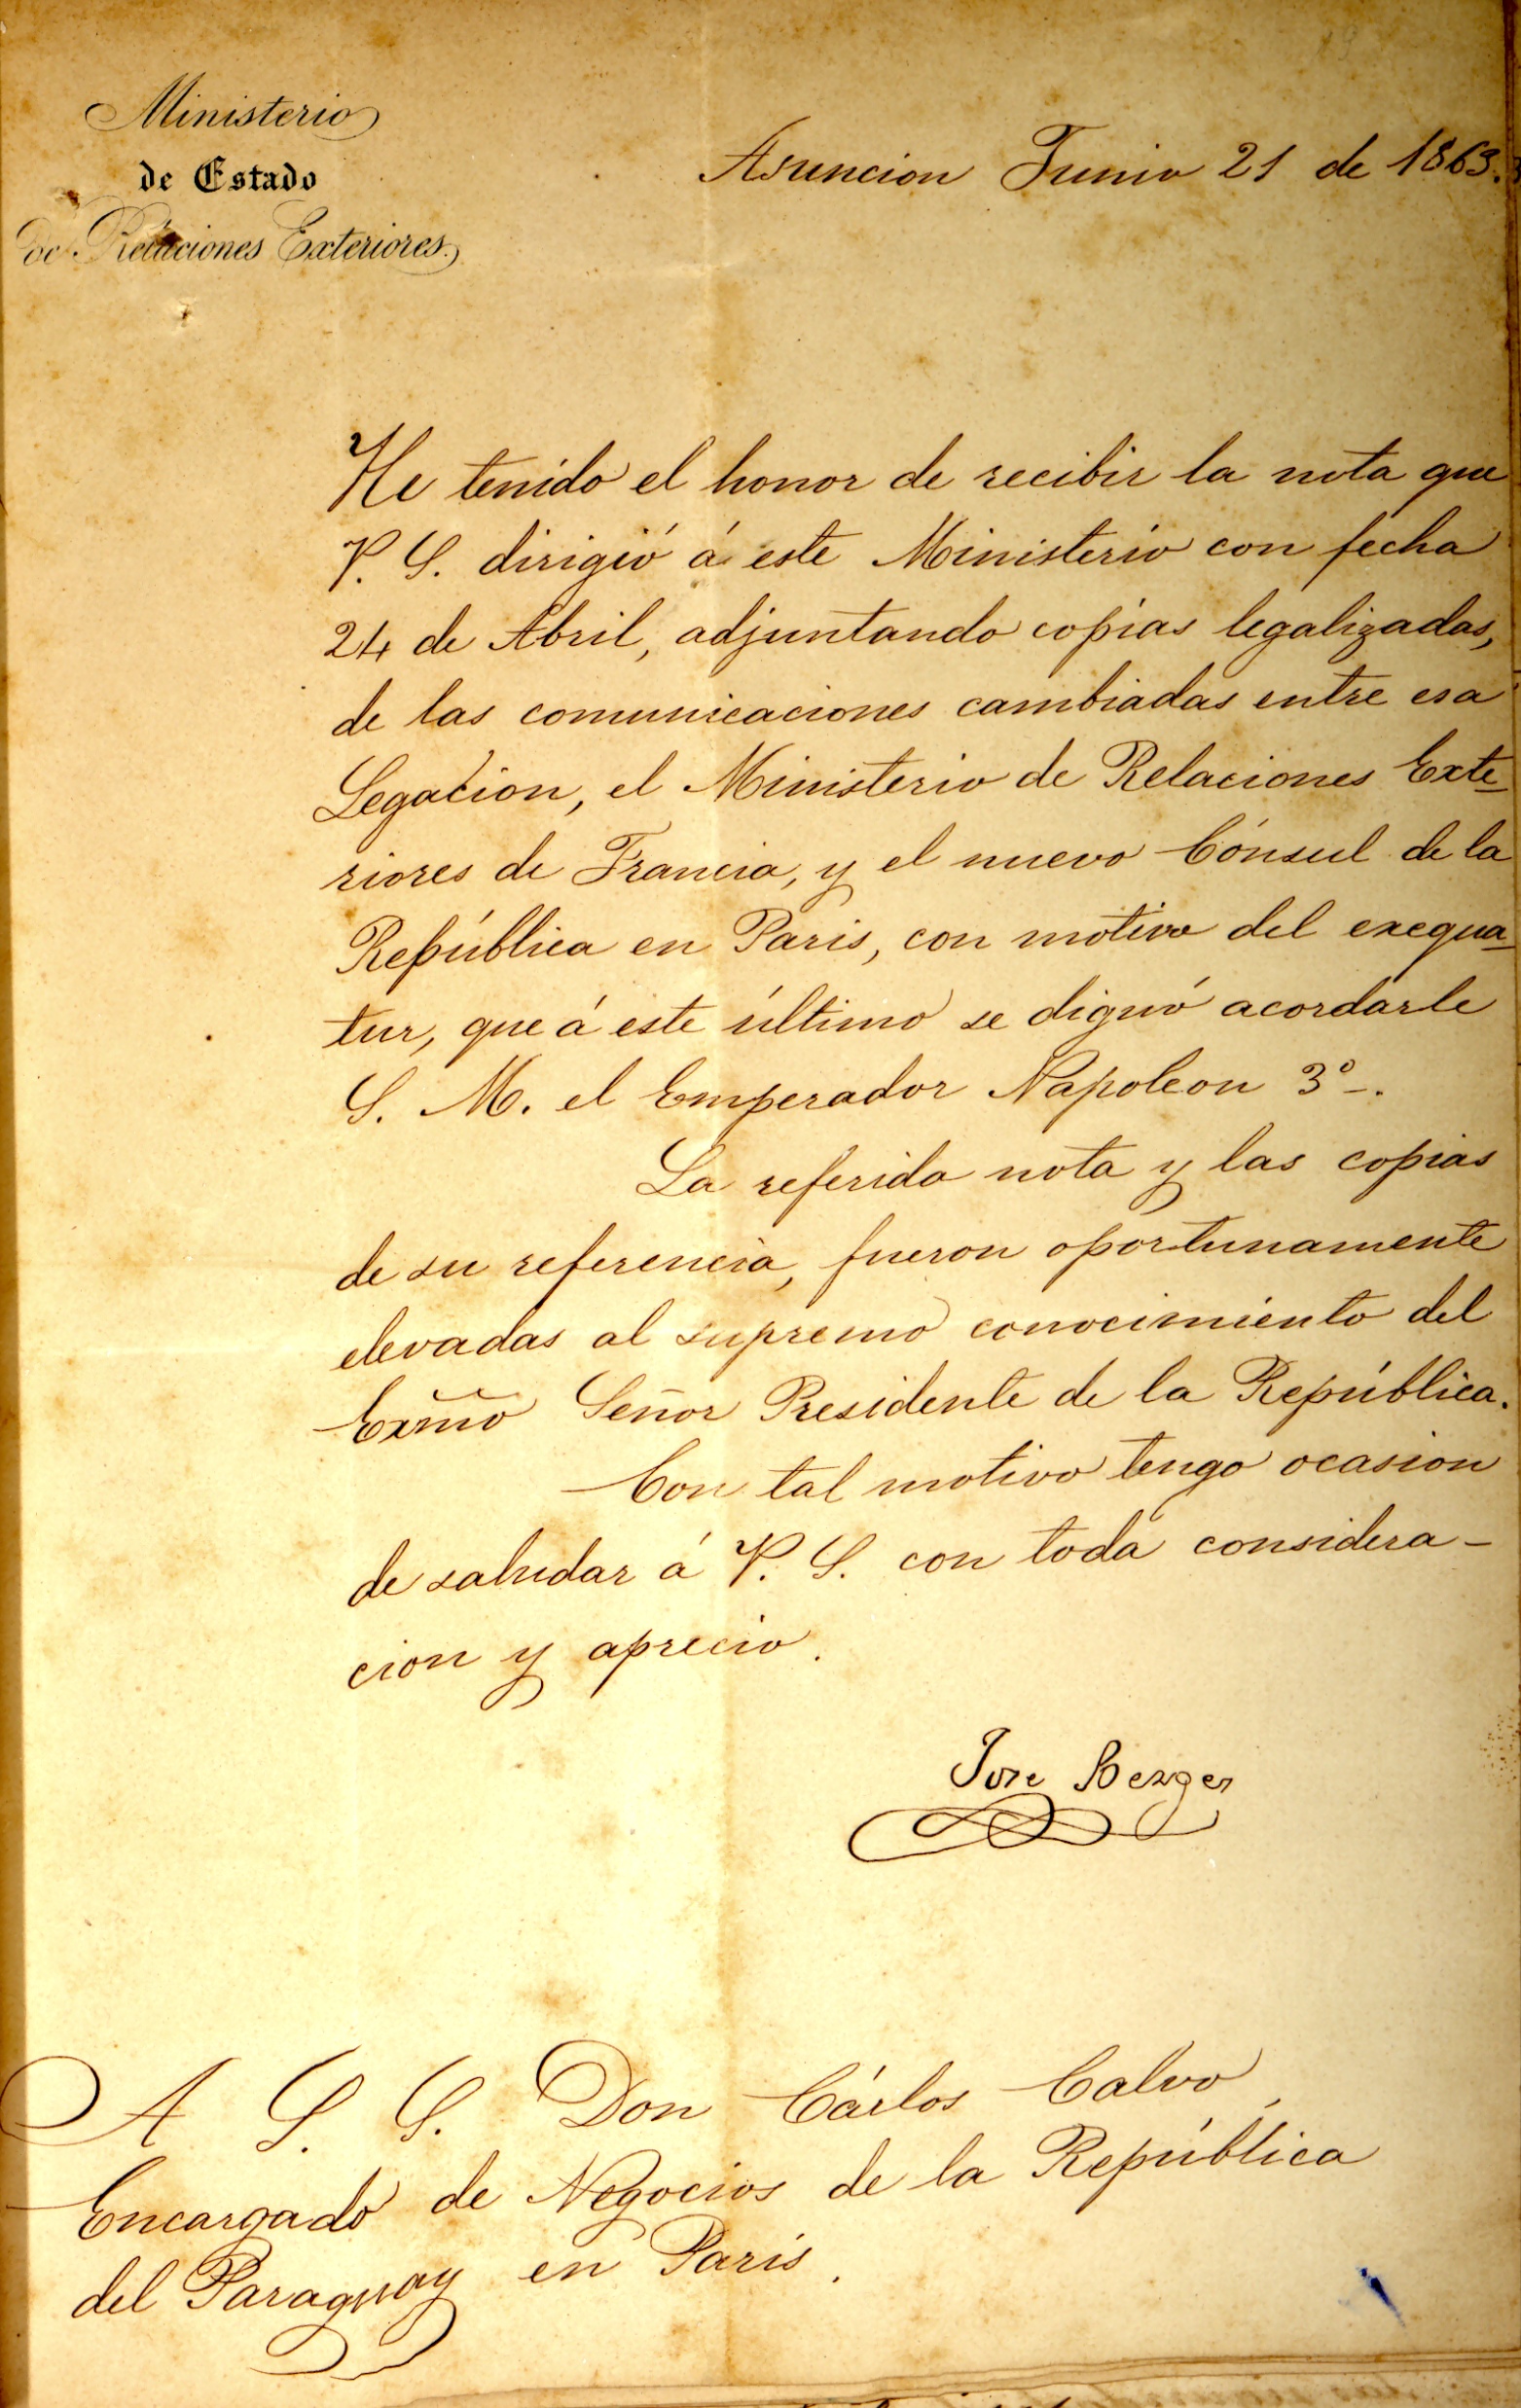 Ministerio
de Estado
de Relaciones Exteriores.
Asuncion Junio 21 de 1863.
He tenido el honor de recibir la nota que
V. S. dirigió á este Ministerio con fecha
24 de Abril, adjuntando copias legalizadas,
de las comunicaciones cambiadas entre esa
Legacion, el Ministerio de Relaciones Exte-
riores de Francia, y el nuevo Cónsul de la
República en Paris, con motivo del exequa-
tur, que á este último se dignó acordarle
S. M. el Emperador Napoleon 3º.
La referida nota y las copias
de su referencia, fueron oportunamente
elevadas al supremo conocimiento del
Exm̃o Señor Presidente de la República.
Con tal motivo tengo ocasion
de saludar á V. S. con toda considera-
cion y aprecio.
Jose Berges
A S. S. Don Cárlos Calvo,
Encargado de Negocios de la República
del Paraguay en Paris.